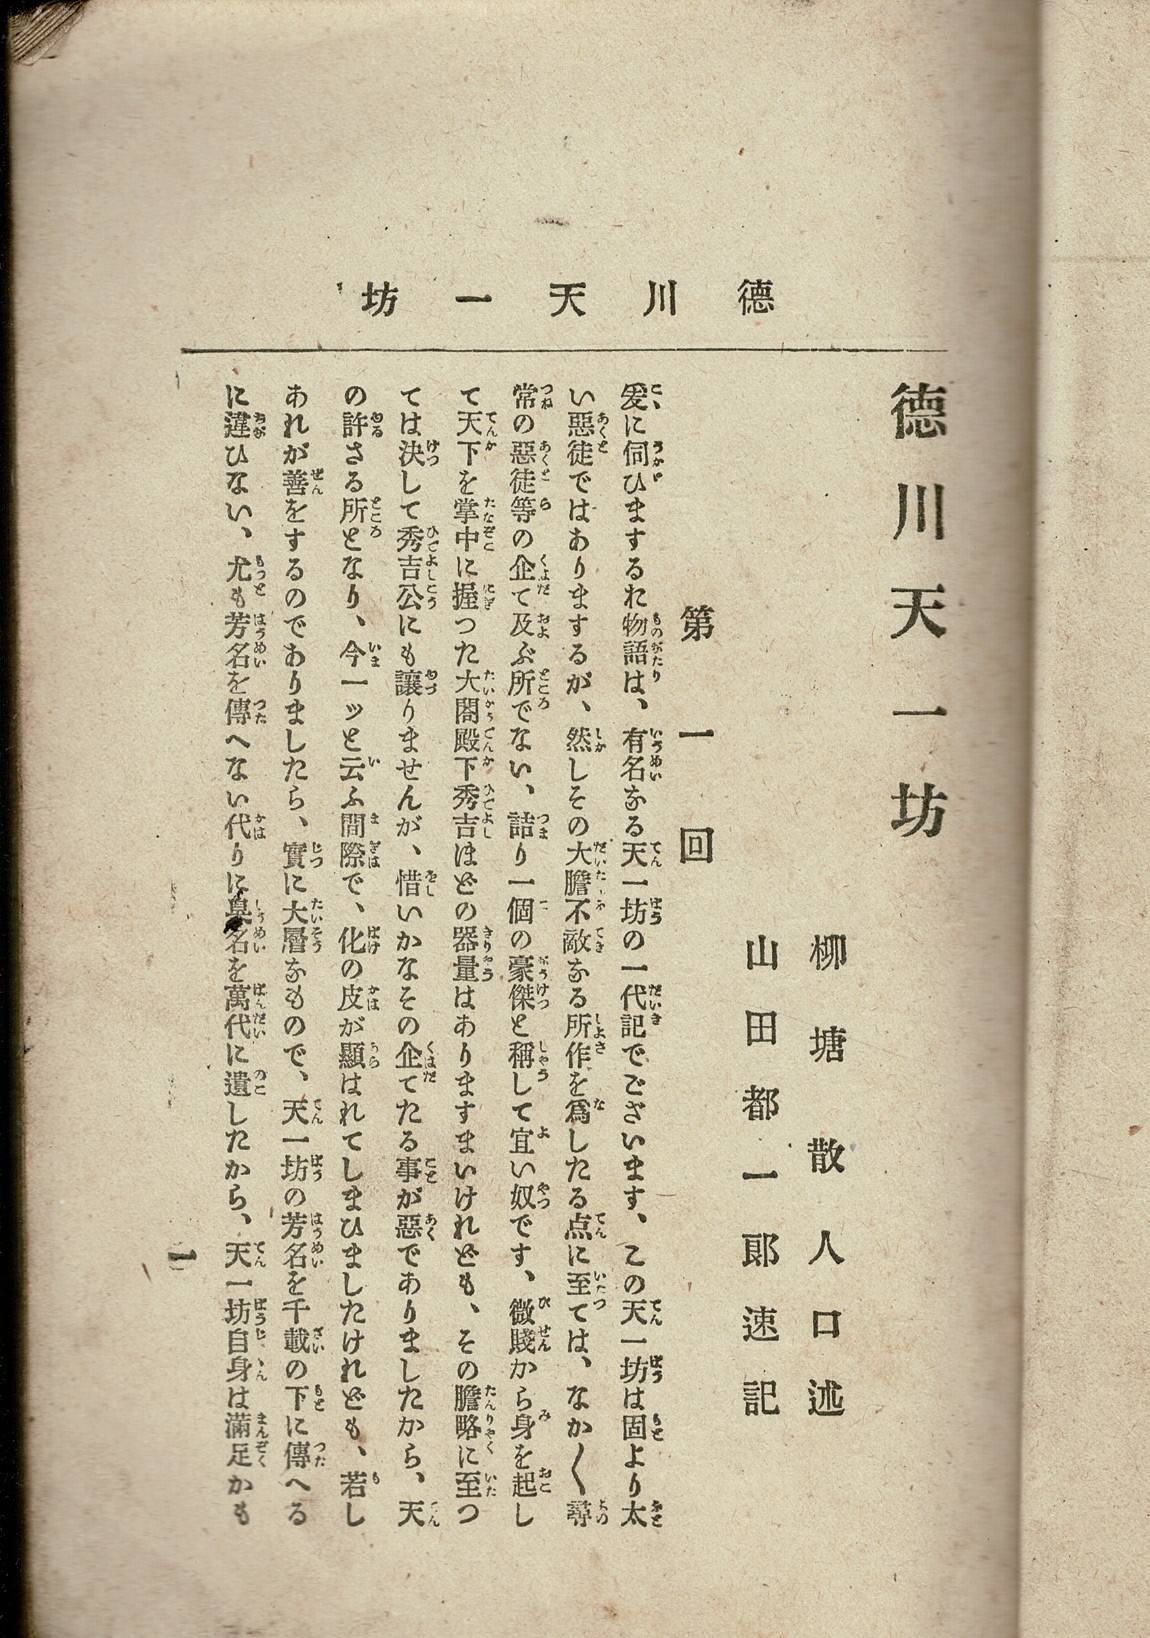 德川天一坊
德川天一坊
柳塘散人口述
山田都一郎速記
第一回
爰に伺ひまするお物語は、有名なる天一坊の一代記でございます、この天一坊は固より太
い惡徒ではありまするが、然しその大膽不敵なる所作を爲したる点に至ては、なか〱尋
常の惡徒等の企て及ぶ所でない、詰り一個の豪傑と稱して宜い奴です、微賤から身を起し
て天下を掌中に握つた大閤殿下秀吉ほどの器量はありますまいけれども、その膽略に至つ
ては決して秀吉公にも讓りませんが、惜いかなその企てたる事が惡でありましたから、天
の許さる所となり、今一ッと云ふ間際で、化の皮が顯はれてしまひましたけれども、若し
あれが善をするのでありましたら、實に大層なもので、天一坊の芳名を千載の下に傳へる
に違ひない、尤も芳名を傳へない代りに臭名を萬代に遺したから、天一坊自身は滿足かも
一